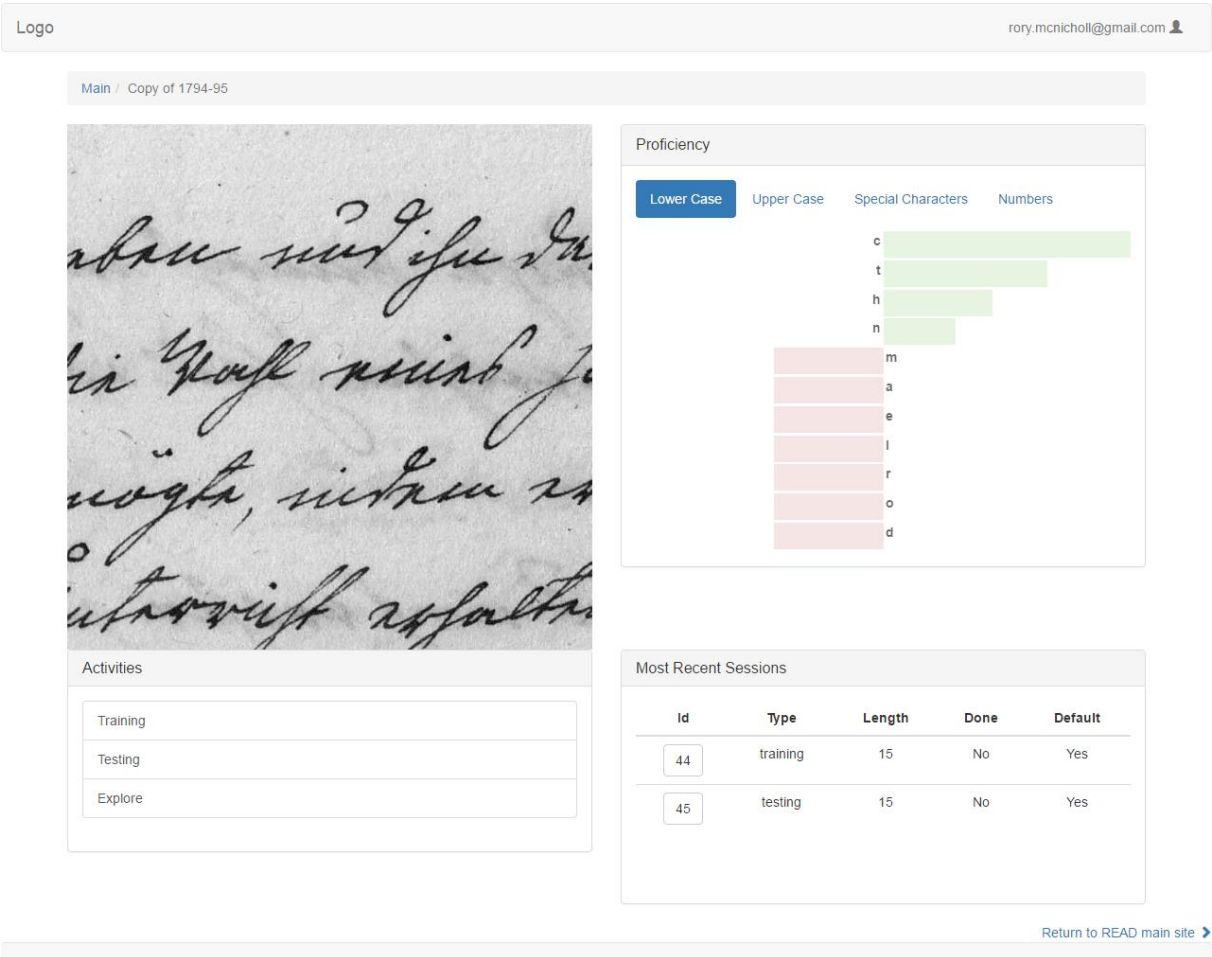 Logo
rory.mcnicholl@gmail.com
Main / Copy of 1794-95
aben und ihn da
die Wahl meines
mögte, indem er
Unterricht erhalten
Proficiency
Lower Case Upper Case Special Characters Numbers
c
t
h
n
m
a
e
l
r
o
d
Activities
Training
Testing
Explore
Most Recent Sessions
Id Type Length Done Default
44 training 15 No Yes
45 testing 15 No Yes
Return to READ main site